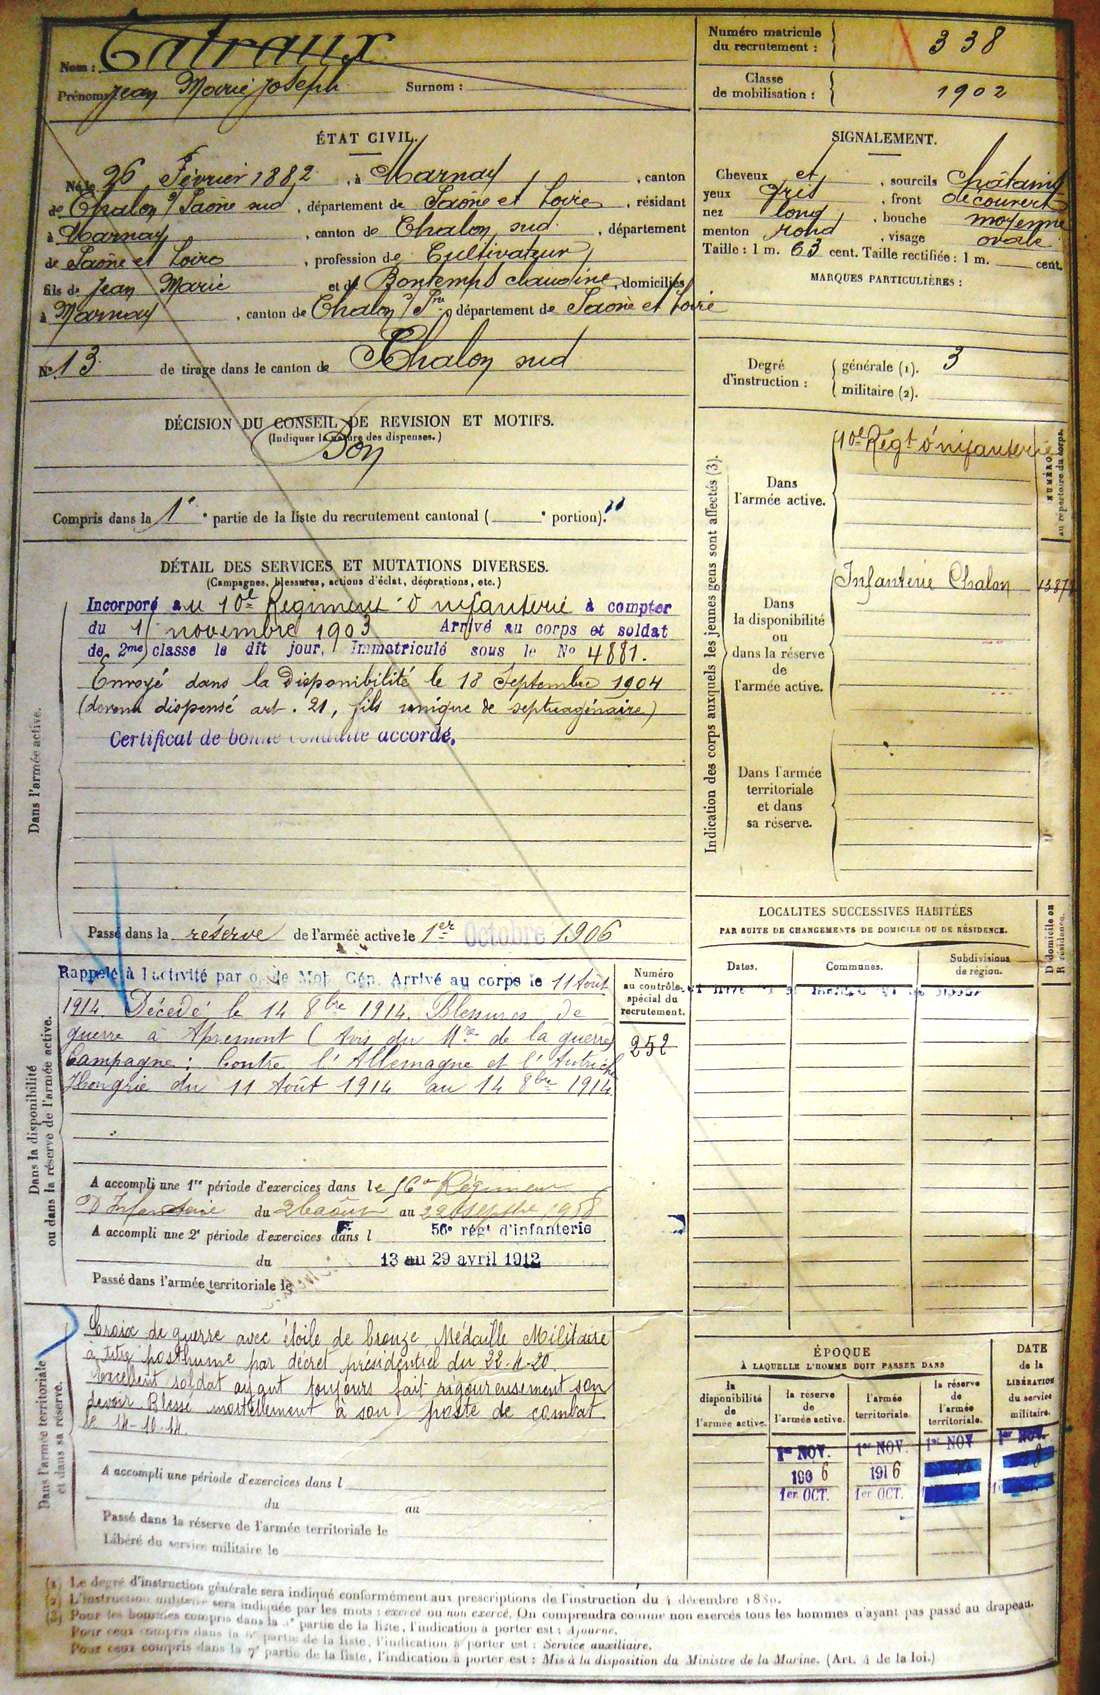 Nom : Tatraux
Prénoms Jean Marie Joseph Surnom :
Numéro matricule du recrutement : 338
Classe de mobilisation : 1902
ÉTAT CIVIL.
Né le 26 Février 1882, à Marnay, canton
de Chalon s/ Saône sud, département de Saône et Loire, résidant
à Marnay, canton de Chalon sud, département
de Saône et Loire, profession de Cultivateur,
fils de Jean Marie et de Bontemps Claudine, domiciliés
à Marnay, canton de Chalon s/ Sne, département de Saône et Loire
N° 13 de tirage dans le canton de Chalon sud
SIGNALEMENT.
Cheveux et, sourcils châtains
yeux gris, front découvert
nez long, bouche moyenne
menton rond, visage ovale
Taille : 1 m. 63 cent. Taille rectifiée : 1 m. cent.
MARQUES PARTICULIÈRES :
Degré d'instruction : générale (1). 3
militaire (2).
DÉCISION DU CONSEIL DE REVISION ET MOTIFS.
(Indiquer la nature des dispenses.)
Bon
Compris dans la 1e partie de la liste du recrutement cantonal ( portion).
DÉTAIL DES SERVICES ET MUTATIONS DIVERSES.
(Campagnes, blessures, actions d'éclat, décorations, etc.)
Dans l'armée active.
Incorporé au 10e Régiment d'infanterie à compter
du 1 novembre 1903 Arrivé au corps et soldat
de 2me classe le dit jour, Immatriculé sous le No 4881.
Envoyé dans la Disponibilité le 18 Septembre 1904
(devenu dispensé art. 21, fils unique de septuagénaire)
Certificat de bonne conduite accordé.
Passé dans la réserve de l'armée active le 1er Octobre 1906
Indication des corps auxquels les jeunes gens sont affectés (3).
NUMÉRO au répertoire du corps.
Dans l'armée active.
10e Régt d'infanterie
Dans la disponibilité ou dans la réserve de l'armée active.
Infanterie Chalon
Dans l'armée territoriale et dans sa réserve.
LOCALITÉS SUCCESSIVES HABITÉES
PAR SUITE DE CHANGEMENTS DE DOMICILE OU DE RÉSIDENCE.
Dates. Communes. Subdivisions de région. D domicile ou R résidence.
Dans la disponibilité ou dans la réserve de l'armée active.
Numéro au contrôle spécial du recrutement.
252
Rappelé à l'activité par o. de Mob. Gén. Arrivé au corps le 11 Août
1914. Décédé le 14 8bre 1914. Blessures de
guerre à Apremont (Avis du Mre de la guerre)
Campagne : Contre l'Allemagne et l'Autriche
Hongrie du 11 Août 1914 au 14 8bre 1914
A accompli une 1re période d'exercices dans le 56e Régiment
D'Infanterie du 26 août au 22 septbre 1908
A accompli une 2e période d'exercices dans l 56e régt d'infanterie
du 13 au 29 avril 1912
Passé dans l'armée territoriale le
Dans l'armée territoriale et dans sa réserve.
Croix de guerre avec étoile de bronze Médaille Militaire
à titre posthume par décret présidentiel du 22-11-20.
Excellent soldat ayant toujours fait rigoureusement son
devoir. Blessé mortellement à son poste de combat
le 14-10-14.
A accompli une période d'exercices dans l
du au
Passé dans la réserve de l'armée territoriale le
Libéré du service militaire le
ÉPOQUE
À LAQUELLE L'HOMME DOIT PASSER DANS
DATE de la LIBÉRATION du service militaire.
la disponibilité de l'armée active.
la réserve de l'armée active.
l'armée territoriale.
la réserve de l'armée territoriale.
1er NOV. 1er NOV. 1er NOV 1er NOV.
1906 1916
1er OCT. 1er OCT.
(1) Le degré d'instruction générale sera indiqué conformément aux prescriptions de l'instruction du 4 décembre 1889.
(2) L'instruction militaire sera indiquée par les mots : exercé ou non exercé. On comprendra comme non exercés tous les hommes n'ayant pas passé au drapeau.
(3) Pour les hommes compris dans la partie de la liste, l'indication à porter est : Ajourné.
Pour ceux compris dans la partie de la liste, l'indication à porter est : Service auxiliaire.
Pour ceux compris dans la 7e partie de la liste, l'indication à porter est : Mis à la disposition du Ministre de la Marine. (Art. 4 de la loi.)